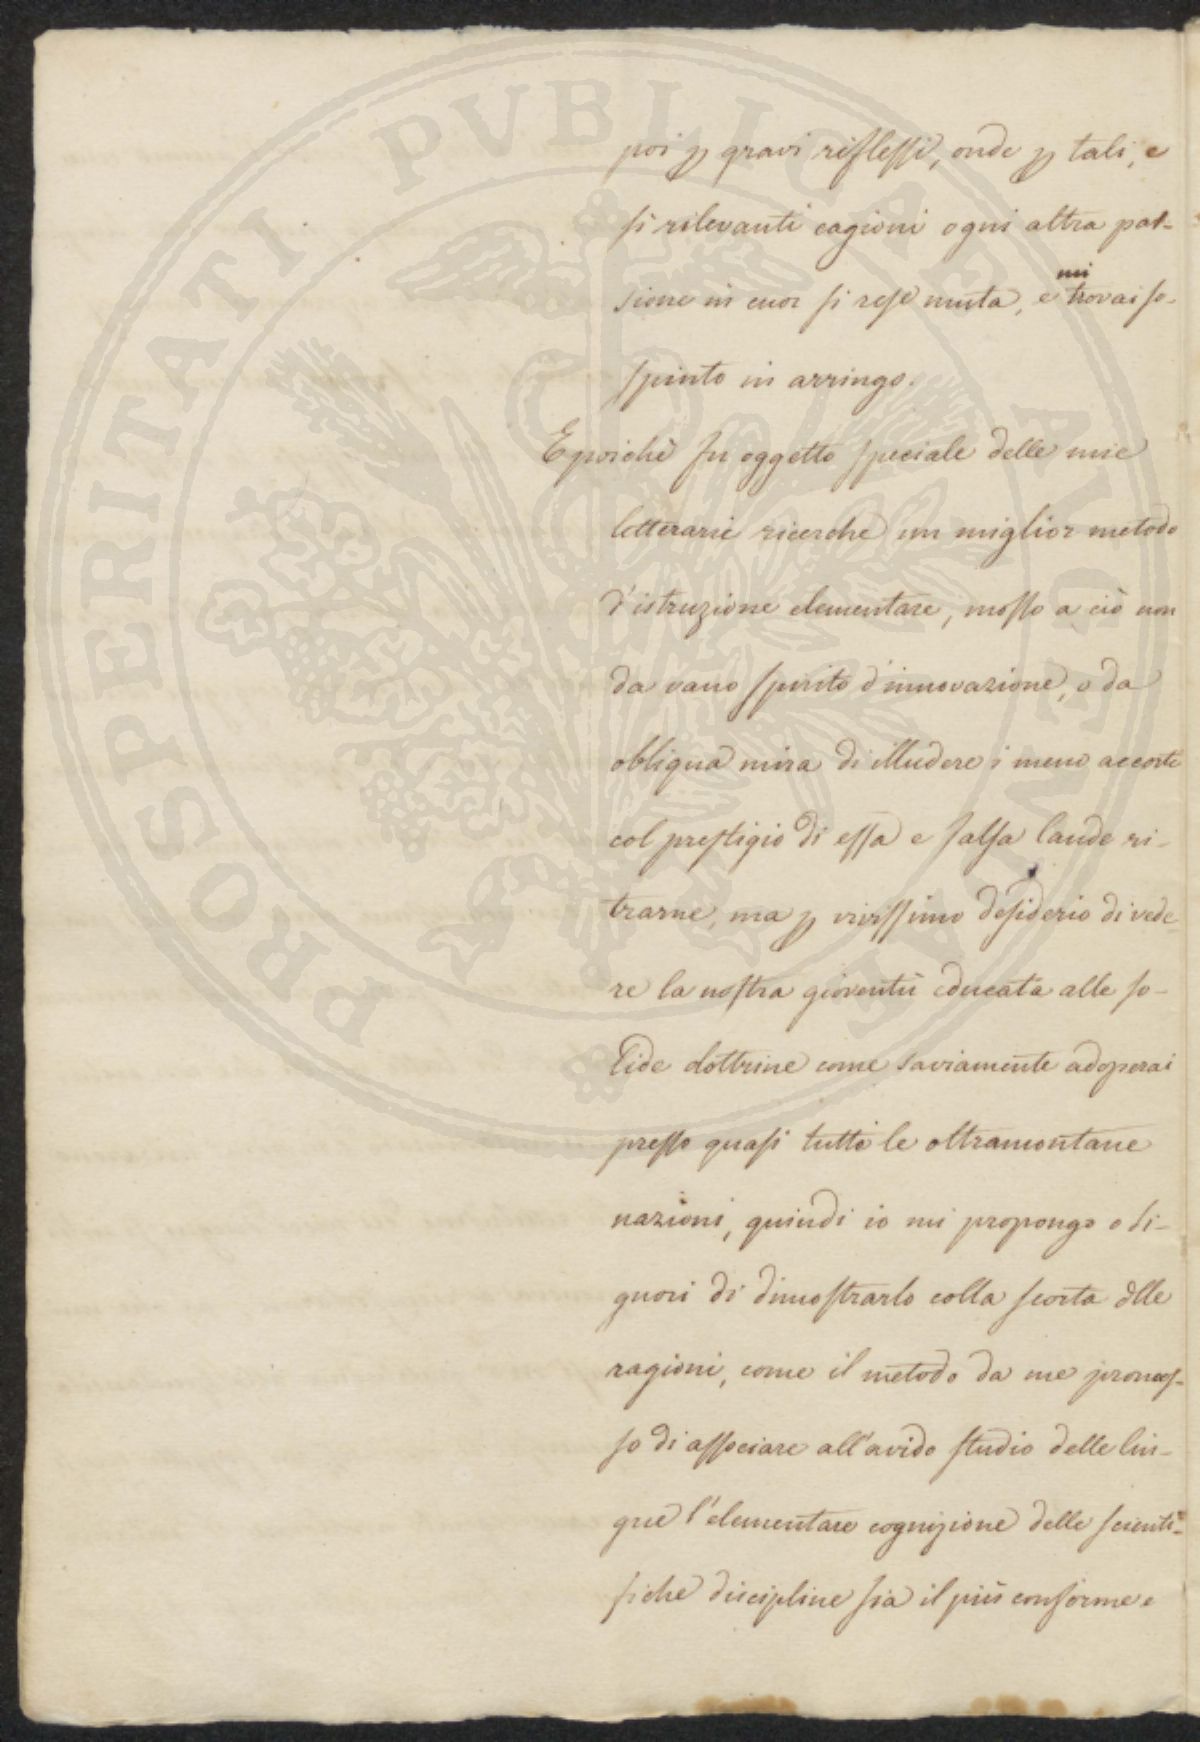 poi p gravi riflessi, onde p tali, e
si rilevanti cagioni ogni altra pas-
sione in cuor si rese muta, e mi trovai so-
spinto in arringo.
E poichè fu oggetto speciale delle mie
letterarie ricerche un miglior metodo
d'istruzione elementare, mosso a ciò non
da vano spirito d'innovazione, o da
obliqua mira di illudere i meno accorti
col prestigio di essa e falsa laude ri-
trarne, ma p vivissimo desiderio di vede-
re la nostra gioventù educata alle so-
lide dottrine come saviamente adoperai
presso quasi tutte le oltramontane
nazioni, quindi io mi propongo o Si-
gnori di dimostrarlo colla scorta dlle
ragioni, come il metodo da me promes-
so di associare all'avido studio delle lin-
gue l'elementare cognizione delle scienti-
fiche discipline sia il più conforme e
PROSPERITATI PVBLICAE AVGENDAE